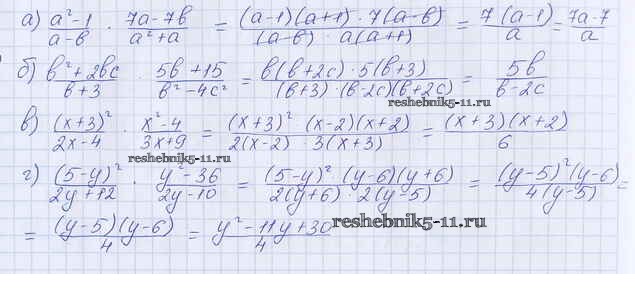 а) (a²-1)/(a-b) · (7a-7b)/(a²+a) = ((a-1)(a+1)·7(a-b))/((a-b)·a(a+1)) = (7(a-1))/a = (7a-7)/a
б) (b²+2bc)/(b+3) · (5b+15)/(b²-4c²) = (b(b+2c)·5(b+3))/((b+3)·(b-2c)(b+2c)) = 5b/(b-2c)
reshebnik5-11.ru
в) (x+3)²/(2x-4) · (x²-4)/(3x+9) = ((x+3)²·(x-2)(x+2))/(2(x-2)·3(x+3)) = ((x+3)(x+2))/6
reshebnik5-11.ru
г) (5-y)²/(2y+12) · (y²-36)/(2y-10) = ((5-y)²·(y-6)(y+6))/(2(y+6)·2(y-5)) = ((y-5)²(y-6))/(4(y-5)) =
= ((y-5)(y-6))/4 = (y²-11y+30)/4
reshebnik5-11.ru